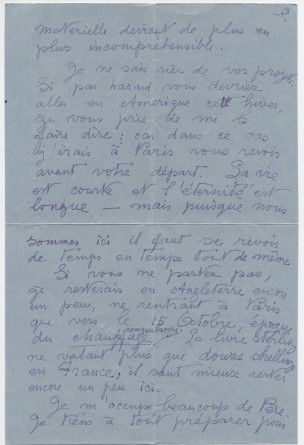 3
materielle devient de plus en
plus incompréhensible.
Je ne sais rien de vos projets.
Si par hazard vous devriez
aller en Amerique cet hiver,
je vous prie de me le
faire dire; car dans ce cas
j'irais à Paris vous revoir
avant votre départ. La vie
est courte et l'éternité est
longue — mais puisque nous
sommes ici il faut se revoir
de temps en temps tout de même
Si vous ne partez pas,
je resterais en Angleterre encore
un peu, ne rentrant à Paris
que vers le 15 Octobre, époque
du chauffage. La livre sterling
ne valant plus que douze shellings
en France, il vaut mieux rester
encore un peu ici.
Je m'occupe beaucoup de
Je tiens à tout préparer pour